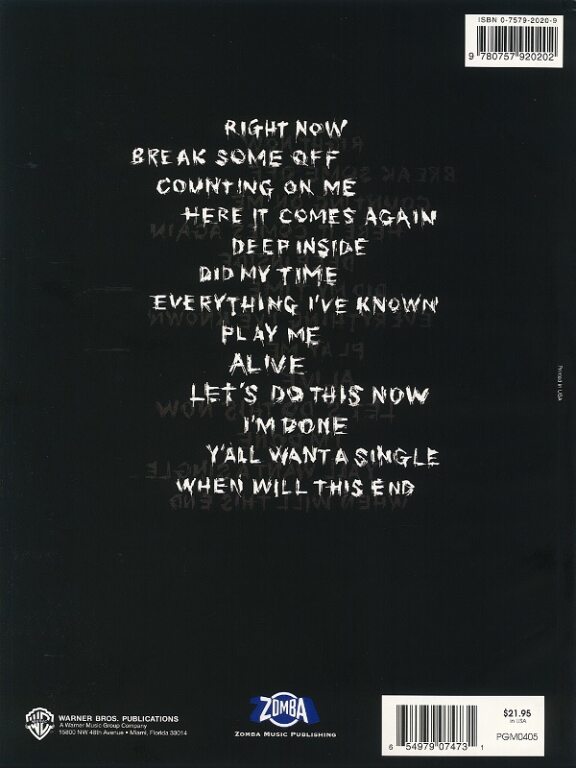 ISBN 0-7579-2020-9
9 780757 920202
RIGHT NOW
BREAK SOME OFF
COUNTING ON ME
HERE IT COMES AGAIN
DEEP INSIDE
DID MY TIME
EVERYTHING I'VE KNOWN
PLAY ME
ALIVE
LET'S DO THIS NOW
I'M DONE
Y'ALL WANT A SINGLE
WHEN WILL THIS END
Printed in USA
WB
WARNER BROS. PUBLICATIONS
A Warner Music Group Company
15800 NW 48th Avenue • Miami, Florida 33014
ZOMBA
ZOMBA MUSIC PUBLISHING
6 54979 07473 1
$21.95
in USA
PGM0405